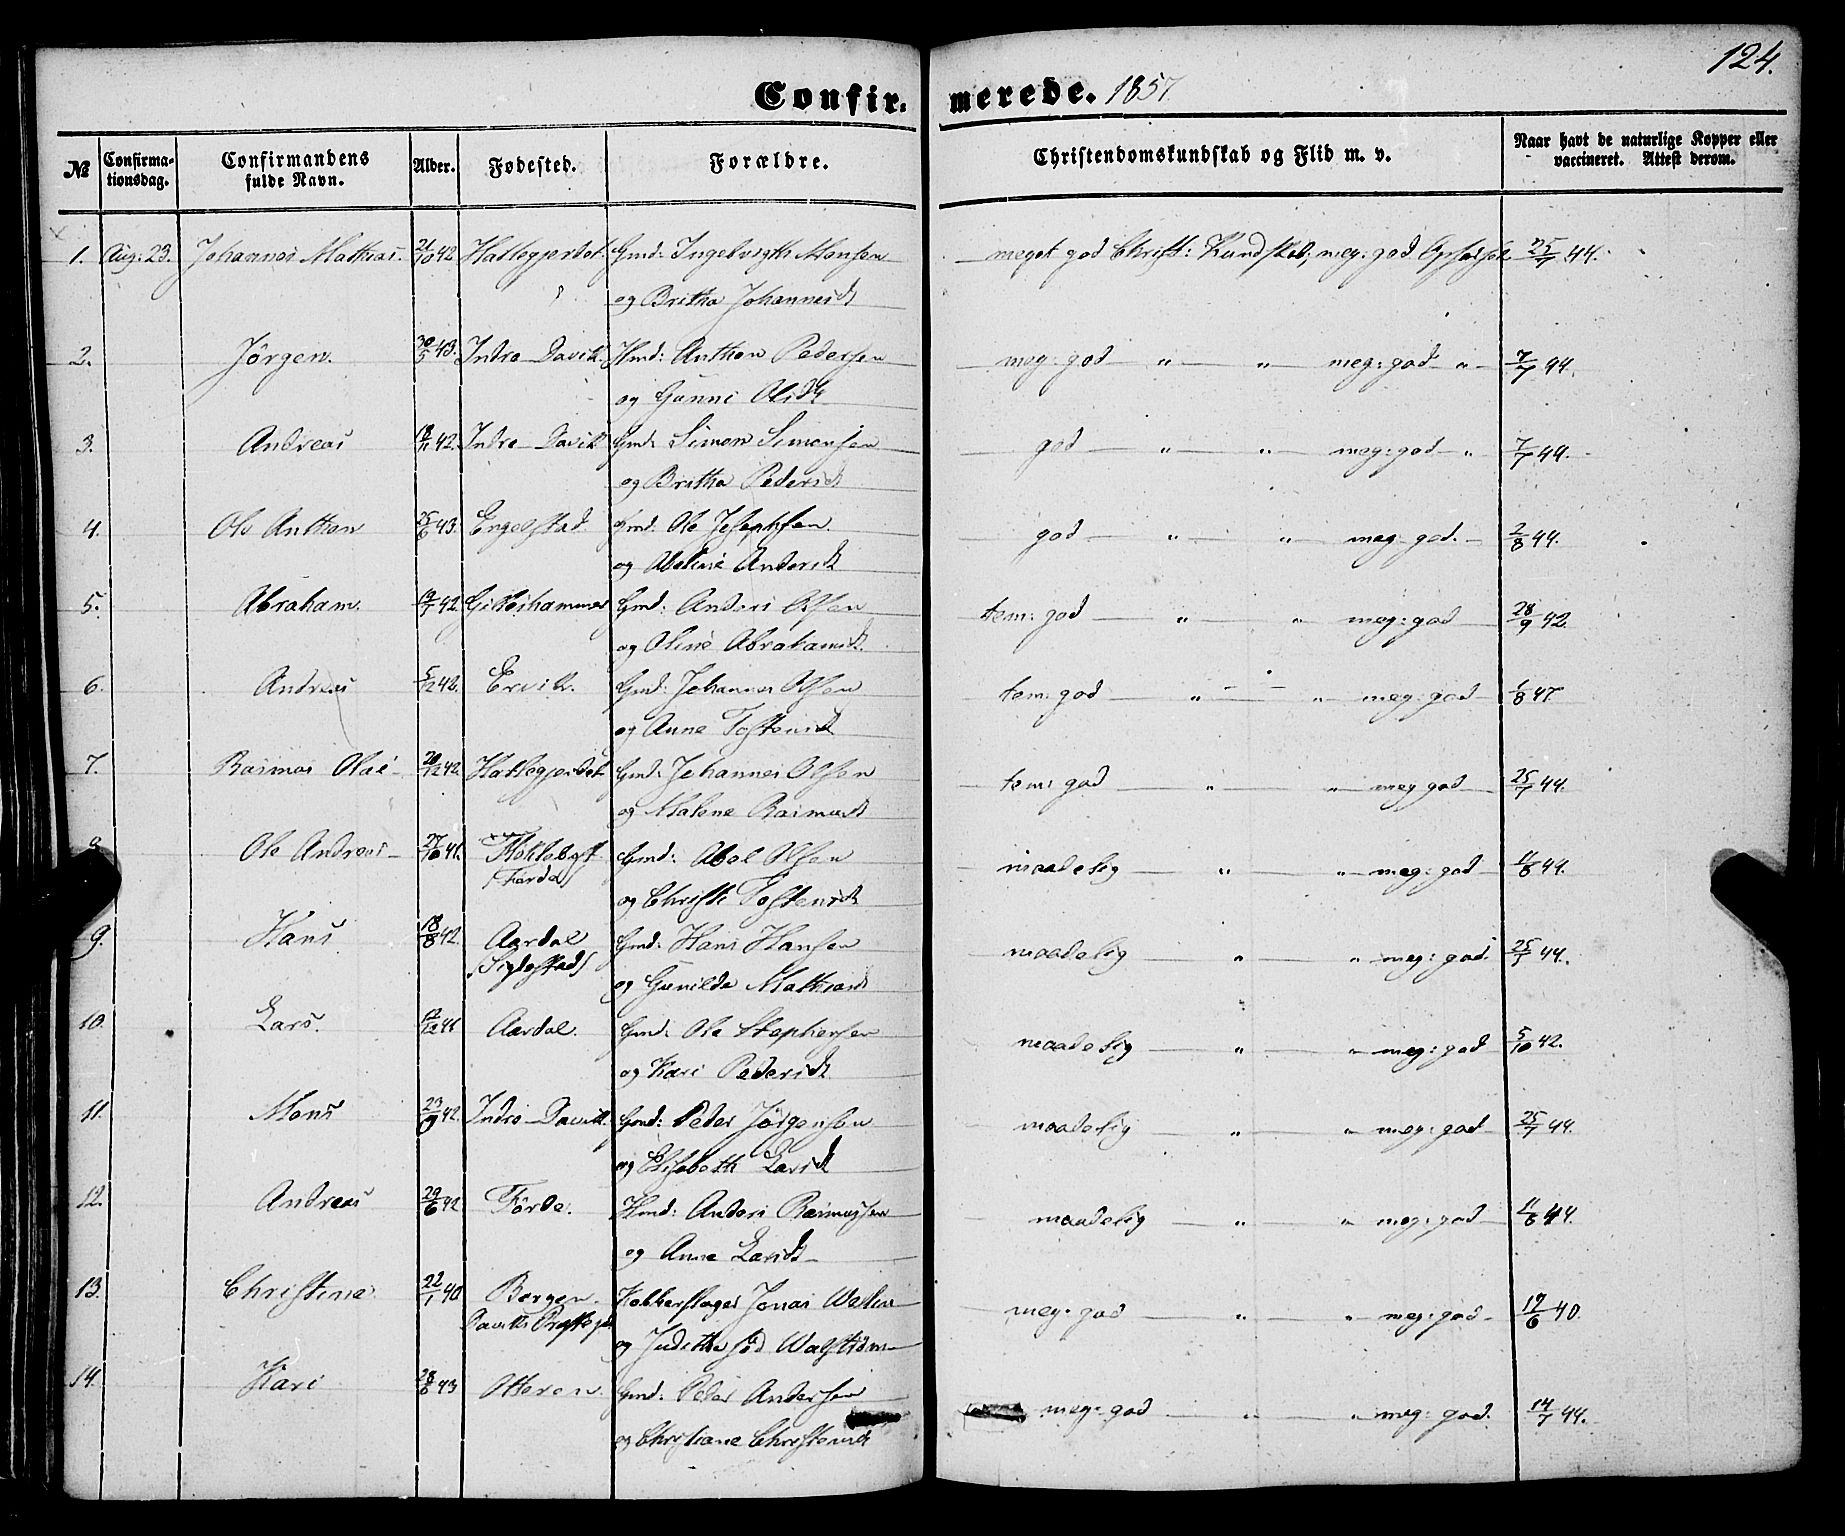 124.
Confir. merede. 1857
№ Confirma- tionsdag. Confirmandens fulde Navn. Alder. Fødested. Forældre. Christendomskundskab og Flid m. v. Naar havt de naturlige Kopper eller vaccineret. Attest derom.
1. Aug: 23. Johannes Mathias. 21/10 42 Hatlegjerdet Gmd: Ingebrigth Monsen meget god Christ: Kundskab; meg: god 25/7 44.
og Britha Johannesd
2. Jörgen. 30/5 43. Indre Davik Hmd: Anthon Pedersen meg: god " " meg: god " 7/7 44.
og Gunni Olsd
3. Andreas 18/11 42. Indre Davik Gmd: Simon Simensen god " " meg: god " 7/7 44.
og Britha Pedersd
4. Ole Anthon 25/6 43. Engelstad Gmd: Ole Josephsen god " " meg: god. 2/8 44.
og Abeline Andersd
5. Abraham. 19/7 42 Gildeihammer Gmd: Anders Olsen tem: god " " meg: god 28/9 42
og Oline Abrahamsd.
6. Andreas 5/12 42. Ervik. Gmd: Johannes Olsen tem: god " " meg: god 1/8 47
og Anne Tostensd
7. Rasmus Olai 20/12 42. Hatlegjerdet Gmd: Johannes Olsen tem: god " " meg god 25/7 44.
og Malene Rasmusd
8 Ole Andreas 27/10 41. Möklebost Gmd: Abel Olsen maadelig " " meg: god 11/8 44.
(Förde) og Christi Tostensd
9. Hans 18/8 42. Aardal Gmd: Hans Hansen maadelig " " meg: god. 25/7 44.
(Sigdestad) og Gunilde Mathiasd
10. Lars. 12/12 41 Aardal. Gmd: Ole Stephensen maadelig " " meg: god 5/10 42.
og Kari Pedersd.
11. Mons 23/9 42. Indre Davik. Gmd: Peder Jörgensen maadelig " " meg: god 25/7 44.
og Elisabeth Larsd
12. Andreas 29/6 42 Förde. Hmd: Anders Rasmussen maadelig " " meg: god 11/8 44.
og Anne Larsd
13. Christine. 22/1 40 Bergen. Kobberslager Jonas meg: god " " meg: god 17/6 40.
Davik og Judithe född
14. Kari 28/8 43 Otteren. Gmd: Peder Andersen meg: god " " meg: god. 14/7 44.
og Christiane Christensd